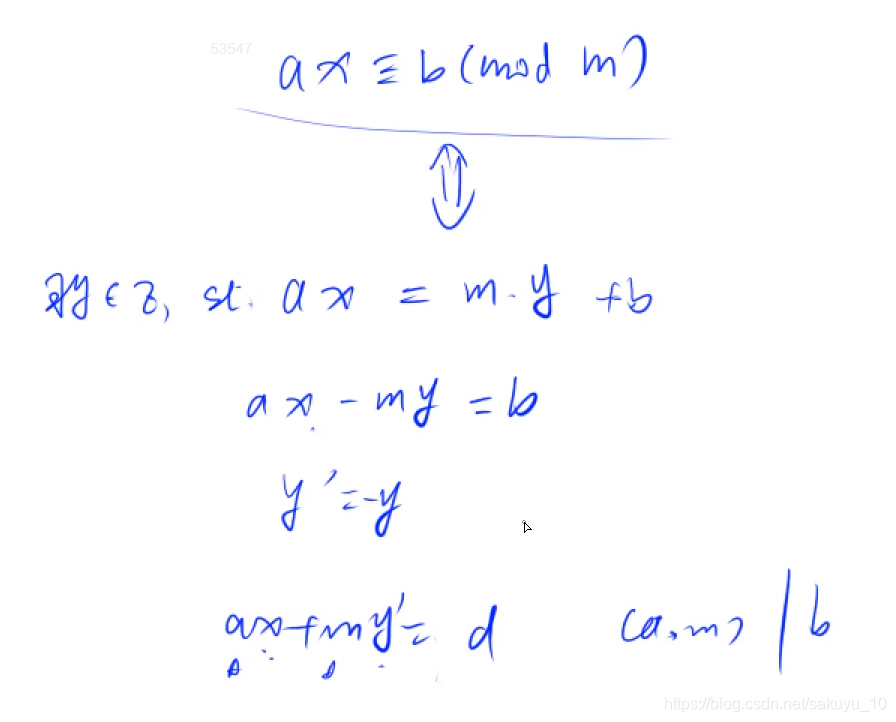 53547
ax ≡ b (mod m)
⇕
∃y ∈ Z, st. ax = m·y + b
ax - my = b
y' = -y
ax + my' = d (a, m) | b
https://blog.csdn.net/sakuyu_10